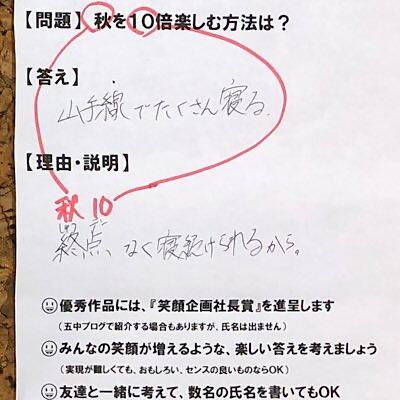 【問題】 秋を10倍楽しむ方法は?
【答え】
山手線でたくさん寝る。
【理由・説明】
秋 10
終点、なく寝続けられるから。
優秀作品には、『笑顔企画社長賞』を進呈します
(五中ブログで紹介する場合もありますが、氏名は出ません)
みんなの笑顔が増えるような、楽しい答えを考えましょう
(実現が難しくても、おもしろい、センスの良いものならOK)
友達と一緒に考えて、数名の氏名を書いてもOK